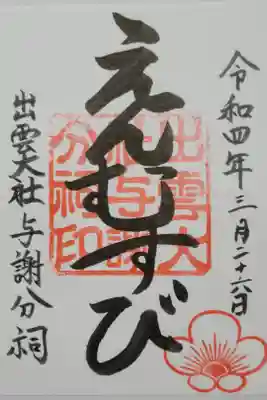 令和四年三月二十六日
えんむすび
出雲大社与謝分祠
出雲大
社与謝
分祠印